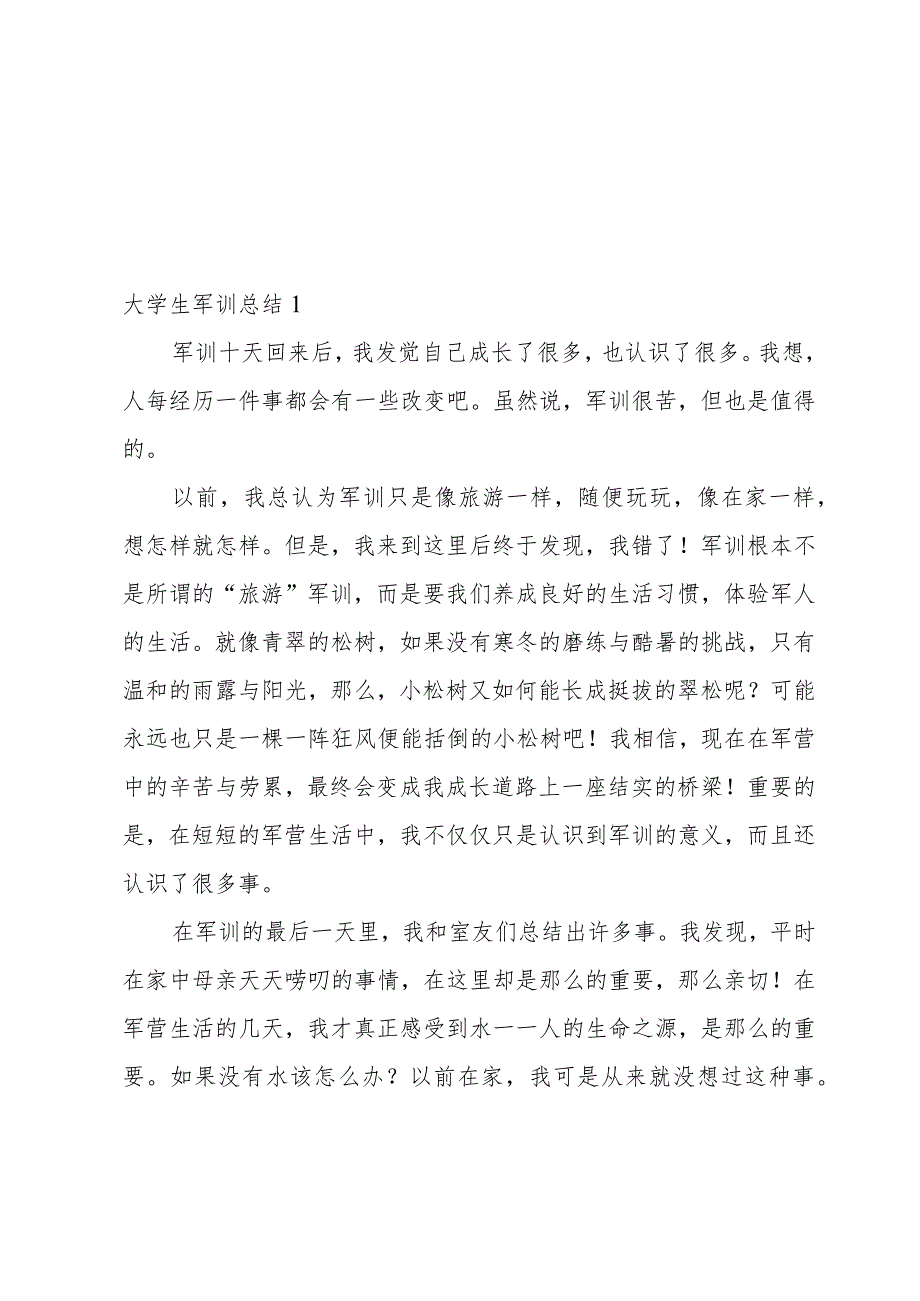 大学生军训总结1
军训十天回来后，我发觉自己成长了很多，也认识了很多。我想，
人每经历一件事都会有一些改变吧。虽然说，军训很苦，但也是值得
的。
以前，我总认为军训只是像旅游一样，随便玩玩，像在家一样，
想怎样就怎样。但是，我来到这里后终于发现，我错了！军训根本不
是所谓的“旅游”军训，而是要我们养成良好的生活习惯，体验军人
的生活。就像青翠的松树，如果没有寒冬的磨练与酷暑的挑战，只有
温和的雨露与阳光，那么，小松树又如何能长成挺拔的翠松呢？可能
永远也只是一棵一阵狂风便能括倒的小松树吧！我相信，现在在军营
中的辛苦与劳累，最终会变成我成长道路上一座结实的桥梁！重要的
是，在短短的军营生活中，我不仅仅只是认识到军训的意义，而且还
认识了很多事。
在军训的最后一天里，我和室友们总结出许多事。我发现，平时
在家中母亲天天唠叨的事情，在这里却是那么的重要，那么亲切！在
军营生活的几天，我才真正感受到水一一人的生命之源，是那么的重
要。如果没有水该怎么办？以前在家，我可是从来就没想过这种事。